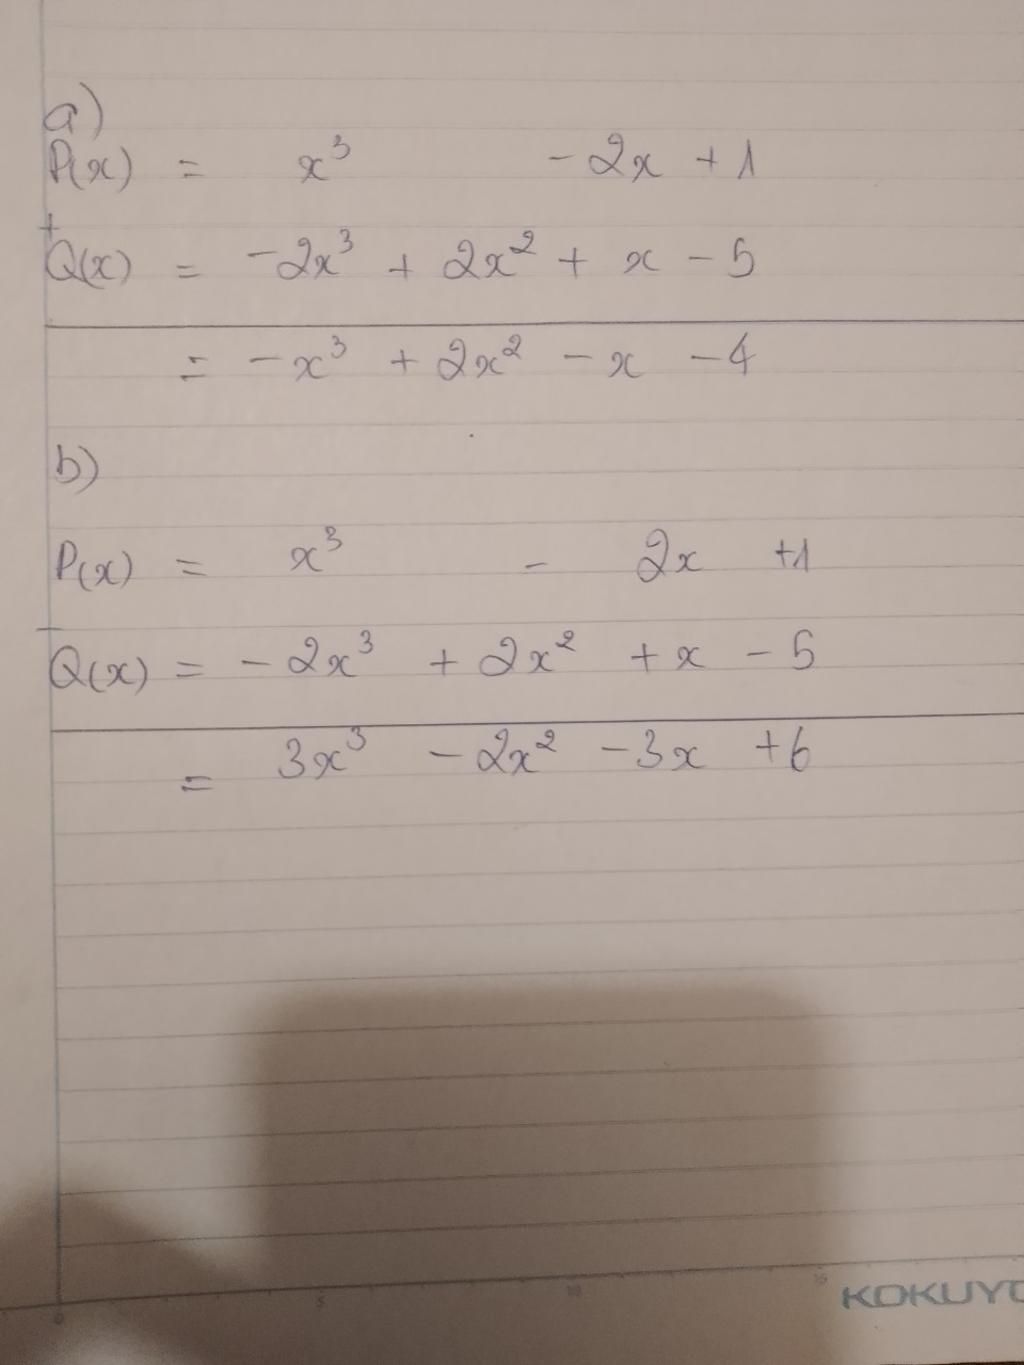 a)
P(x) = x³ - 2x + 1
+
Q(x) = -2x³ + 2x² + x - 5
= -x³ + 2x² - x - 4
b)
P(x) = x³ - 2x +1
-
Q(x) = - 2x³ + 2x² + x - 5
= 3x³ - 2x² - 3x + 6
0 5 10 15
KOKUYO